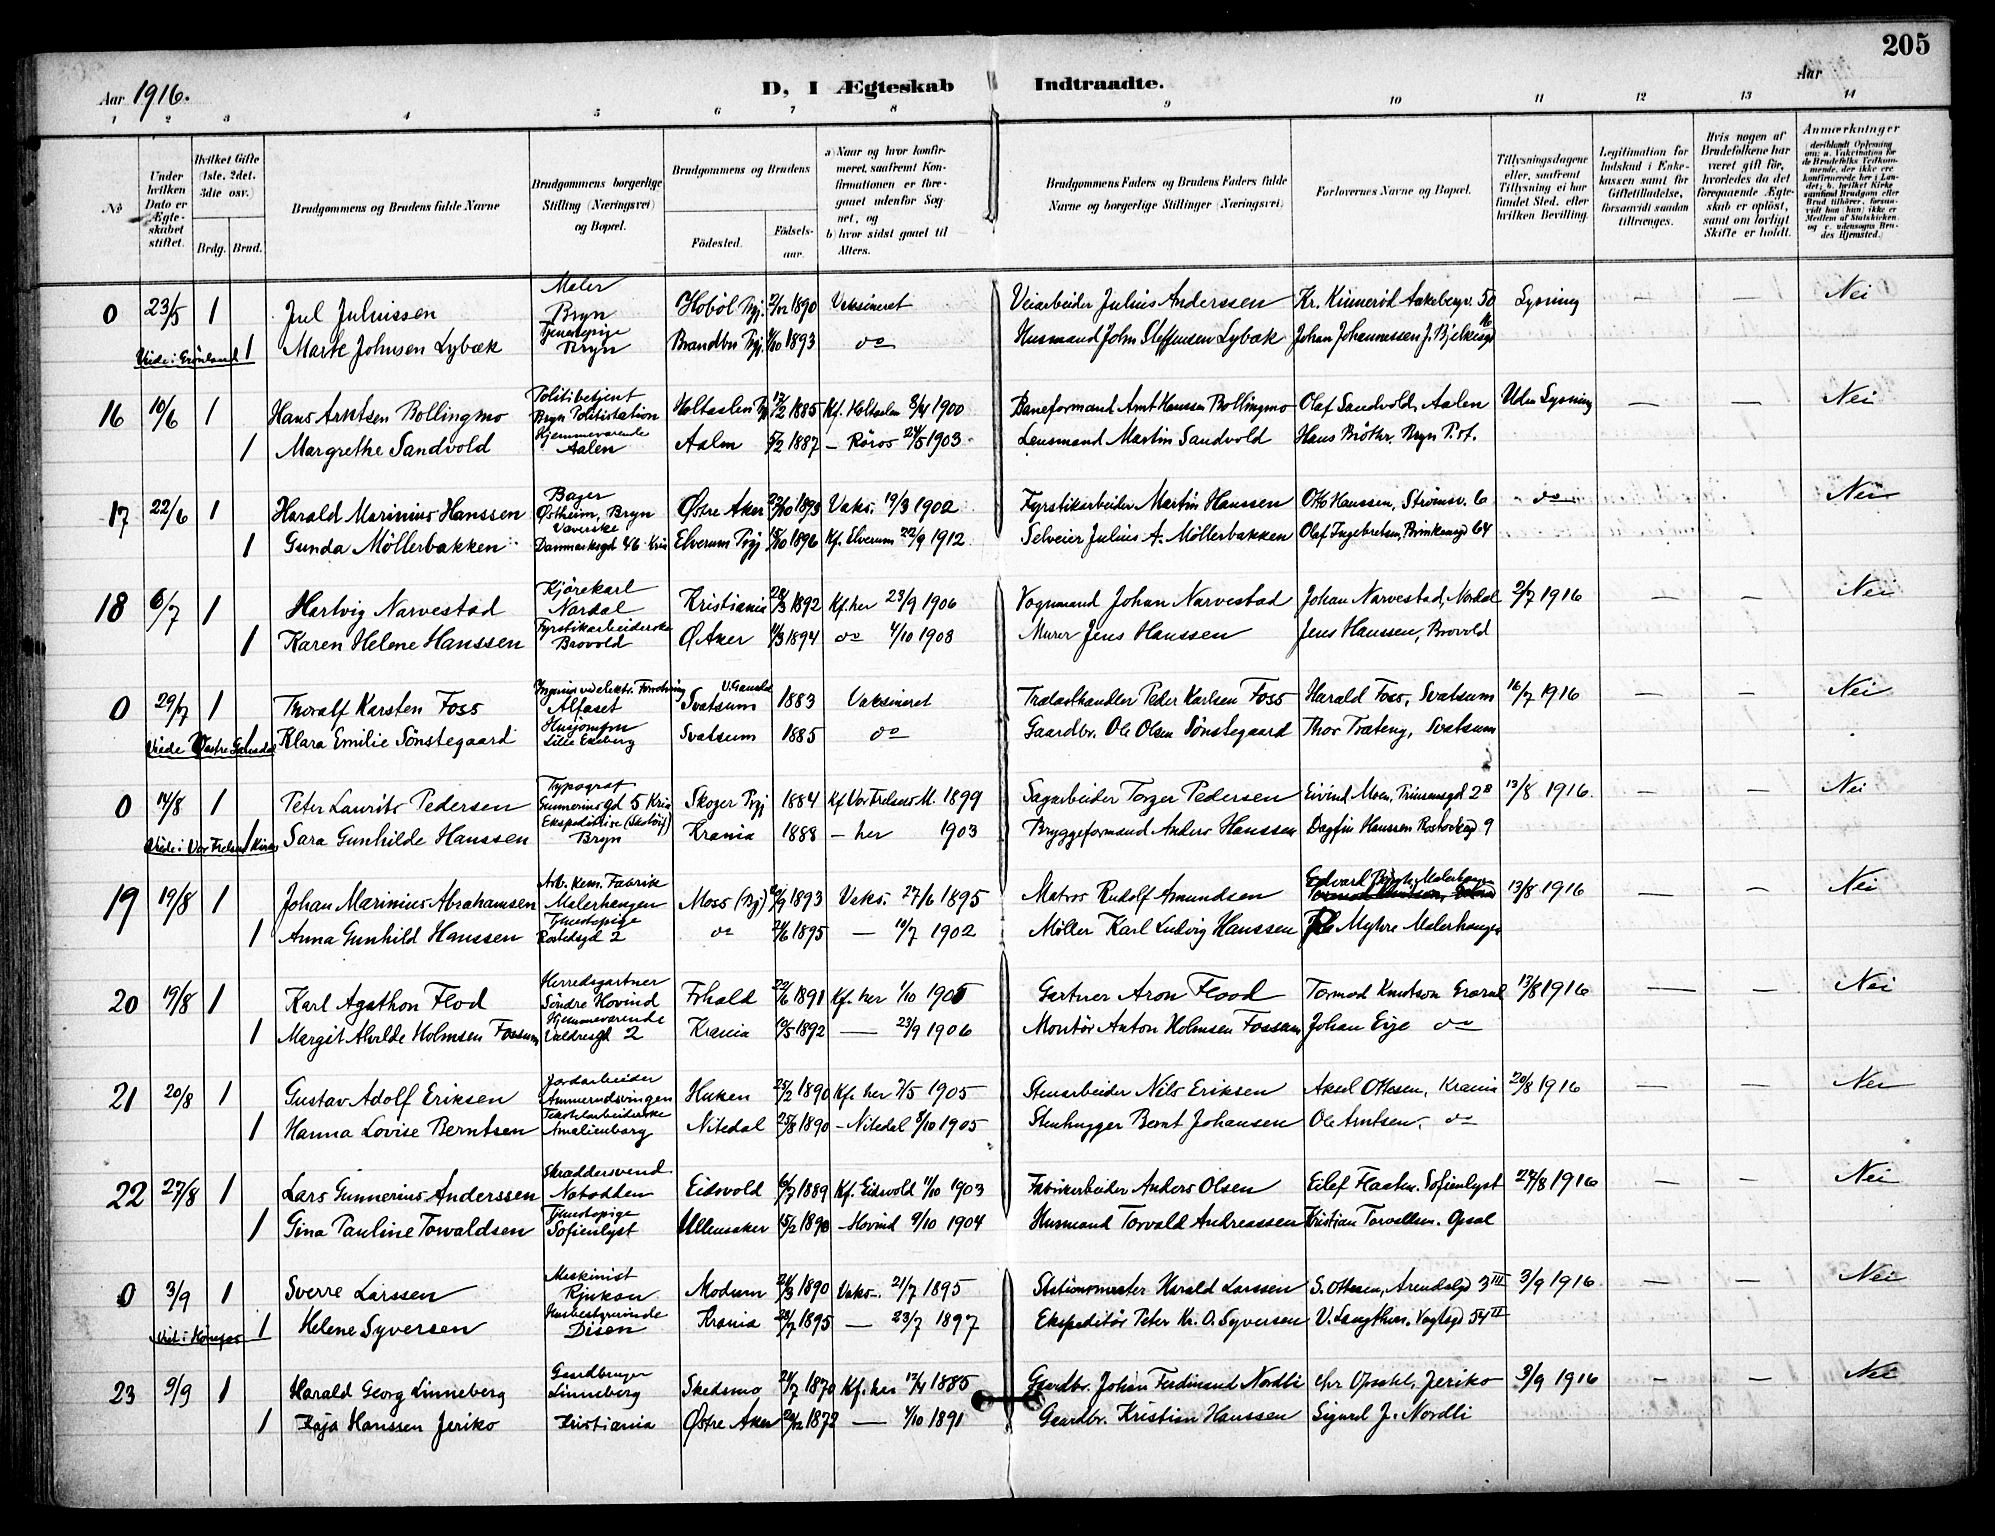 205
Aar 1916.
D, I Ægteskab Indtraadte.
Aar
1 2 3 4 5 6 7 8 9 10 11 12 13 14
№
Under hvilken Dato er Ægteskabet stiftet.
Hvilket Gifte (1ste, 2det, 3die osv.)
Brdg. Brud.
Brudgommens og Brudens fulde Navne
Brudgommens borgerlige Stilling (Næringsvei) og Bopæl.
Brudgommens og Brudens
Fødested. Fødselsaar.
a) Naar og hvor konfirmeret, saafremt Konfirmationen er foregaaet udenfor Sognet, og
b) hvor sidst gaaet til Alters.
Brudgommens Faders og Brudens Faders fulde Navne og borgerlige Stillinger (Næringsvei)
Forlovernes Navne og Bopæl.
Tillysningsdagene eller, saafremt Tillysning ei har fundet Sted, efter hvilken Bevilling.
Legitimation for Indskud i Enkekassen samt for Giftetilladelse, forsaavidt saadan tiltrænges.
Hvis nogen af Brudefolkene har været gift før, hvorledes da det foregaaende Ægteskab er opløst, samt om lovligt Skifte er holdt.
Anmærkninger
0 23/5 1 Jul Juliussen Maler Bryn Hobøl Pgj. 2/12 1890 Vaksineret Veiarbeider Julius Anderssen Kr. Kinnerød Aakebergv. 50 Lysning — — Nei
Viede i Grønland 1 Marte Johnsen Lybæk Tjenestepige Bryn Brandbu Pgj. 1893 do Husmand John Steffensen Lybæk Johan Johannessen J. Bjelkesgd 16
16 10/6 1 Hans Arntsen Bollingmo Politibetjent Bryn Politistation Holtaalen Pgj 17/2 1885 Kf. Holtaalen 8/4 1900 Baneformand Arnt Hanssen Bollingmo Olaf Sandvold, Aalen Uden Lysning — — Nei
1 Margrethe Sandvold Hjemmeværende Aalen Aalen 5/2 1887 — Røros 24/5 1903. Lensmand Martin Sandvold Hans Bryn P.st.
17 22/6 1 Harald Marinius Hanssen Bager Østheim, Bryn Østre Aker 22/10 1893 Vaks. 19/3 1902 Fyrstikarbeider Martin Hanssen Otto Hanssen, Strømsv. 6 do Nei
1 Gunda Møllerbakken Væverske Danmarksgd 46 Kria Elverum Pgj 15/10 1896 Kf. Elverum 22/9 1912. Selveier Julius A. Møllerbakken Olaf Ingebretsen, Brinkensgd 64
18 6/7 1 Hartvig Narvestad Kjørekarl Nordal Kristiania 28/3 1892 Kf. her 23/9 1906 Vognmand Johan Narvestad Johan Narvestad, Nordal 2/7 1916 — — Nei
1 Karen Helene Hanssen Fyrstikarbeiderske Brovold Ø Aker 11/3 1894 do 4/10 1908 Murer Jens Hanssen Jens Hanssen, Brovold
0 29/7 1 Thoralf Karsten Foss Ingeniør ved elektr. Forretning Alfaset Svatsum V. Gausdal 1883 Vaksineret Trælasthandler Peder Karlsen Foss Harald Foss, Svatsum 16/7 1916 — — Nei
Viede Vestre Gausdal 1 Klara Emilie Sønstegaard Husjomfru Lille Ekeberg Svatsum 1885 do Gaardbr. Ole Olsen Sønstegaard Thor Træteng, Svatsum
0 14/8 1 Peter Laurits Pedersen Typograf Gunneriusgd 5 Kria Skoger Pgj 1884 Kf. Vor Frelsers M. 1899 Sagarbeider Torger Pedersen Eivind Moen, Prinsensgd 2B 13/8 1916. — — Nei
Viede i Vor Frelsers Kirke 1 Sara Gunhilde Hanssen Ekspeditrise (Skotøif) Bryn Krania 1888 — her 1903 Bryggeformand Anders Hanssen Dagfin Hanssen Rostockgd 9
19 19/8 1 Johan Marinius Abrahamsen Arb. Kem. Fabrik Malerhaugen Moss (By) 1893 Vaks. 27/6 1895 Matros Rudolf Amundsen Edvard Malerhaugen 13/8 1916 — — Nei
1 Anna Gunhild Hanssen Tjenestepige Rostedsgd 2 do 24/6 1895 — 10/7 1902 Møller Karl Ludvig Hanssen Myhre Malerhaugen
20 19/8 1 Karl Agathon Flod Herredsgartner Søndre Hovind Frhald 22/6 1891 Kf. her 1/10 1905 Gartner Aron Flood Tormod Knutson 13/8 1916 — — Nei
1 Margit Alvilde Holmsen Fossum Hjemmeværende Valdresgd 2 Krania 10/5 1892 — 23/9 1906 Montør Anton Holmsen Fossum Johan Eije do
21 20/8 1 Gustav Adolf Eriksen Jordarbeider Ammerudsvingen Huken 25/2 1890 Kf. her 7/5 1905 Stenarbeider Nils Eriksen Aksel Ottesen, Krania 20/8 1916 — — Nei
1 Hanna Lovise Berntsen Tekstilarbeiderske Amalienborg Nitedal 25/8 1890 — Nitedal 8/10 1905 Stenhugger Bernt Johansen Ole Arntsen. do
22 27/8 1 Lars Gunnerius Anderssen Skræddersvend Notodden Eidsvold 6/7 1889 Kf. Eidsvold 11/10 1903 Fabrikarbeider Anders Olsen Eilef Flaaten. Sofienlyst 27/8 1916 — — Nei
1 Gina Pauline Torvaldsen Tjenestepige Sofienlyst Ullensaker 15/2 1890 — Hovind 9/10 1904 Husmand Torvald Andreassen Kristian Torvaldsen. Opsal
0 3/9 1 Sverre Larssen Maskinist Rjukan Modum 21/3 1890 Vaks. 21/7 1895 Stationsmester Harald Larssen S. Ottesen, Arendalsgd 3 III 3/9 1916. — — Nei
1 Helene Syversen Husbestyrerinde Disen Krania 28/7 1895 — 23/7 1897 Ekspeditør Peter Kr. O. Syversen V. Langthon, Vogtsgd 54 II
23 9/9 1 Harald Georg Linneberg Gaardbruger Linneberg Skedsmo 24/7 1870 Kf. her 12/4 1885 Gaardbr. Johan Ferdinand Nordli Chr Opsahl, Jeriko 3/9 1916 — — Nei
1 Kaja Hanssen Jeriko Kristiania Østre Aker 20/12 1872 — 4/10 1891 Gaardbr. Kristian Hanssen Sigurd J. Nordli